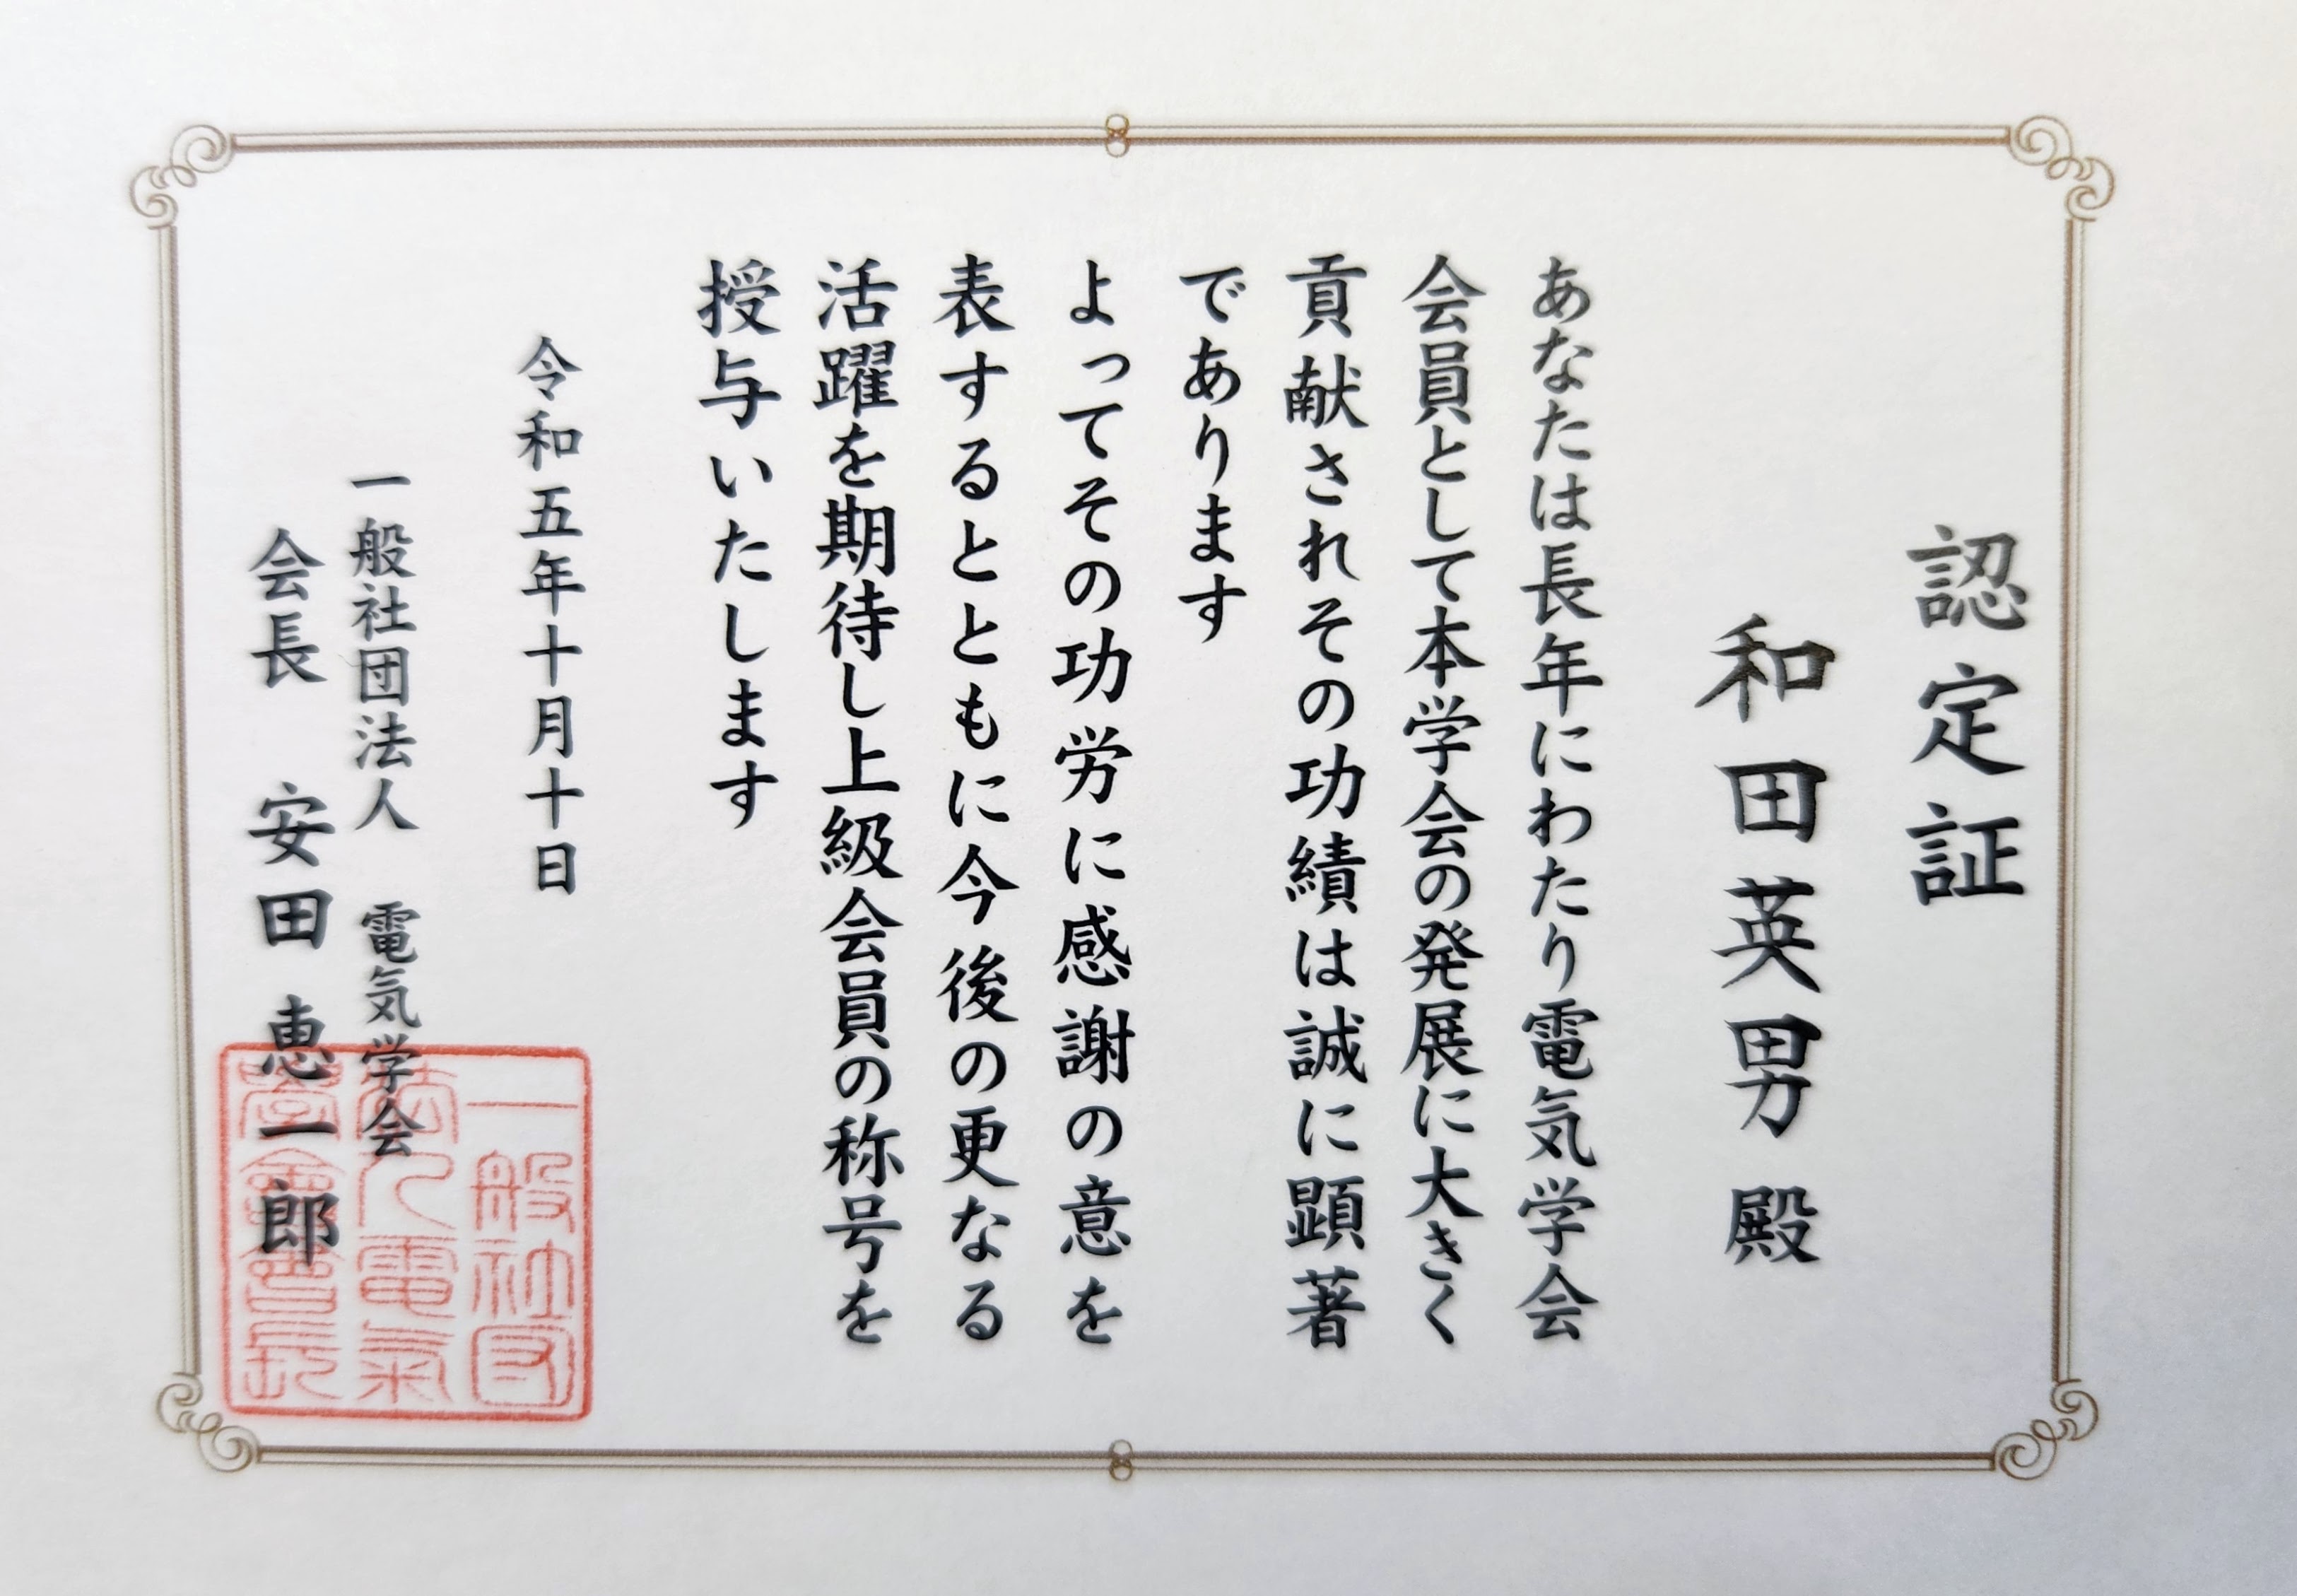 認定証
和田英男 殿
あなたは長年にわたり電気学会
会員として本学会の発展に大きく
貢献されその功績は誠に顕著
であります
よってその功労に感謝の意を
表するとともに今後の更なる
活躍を期待し上級会員の称号を
授与いたします
令和五年十月十日
一般社団法人 電気学会
会長 安田 恵一郎
一般社団
法人電氣
學會會長